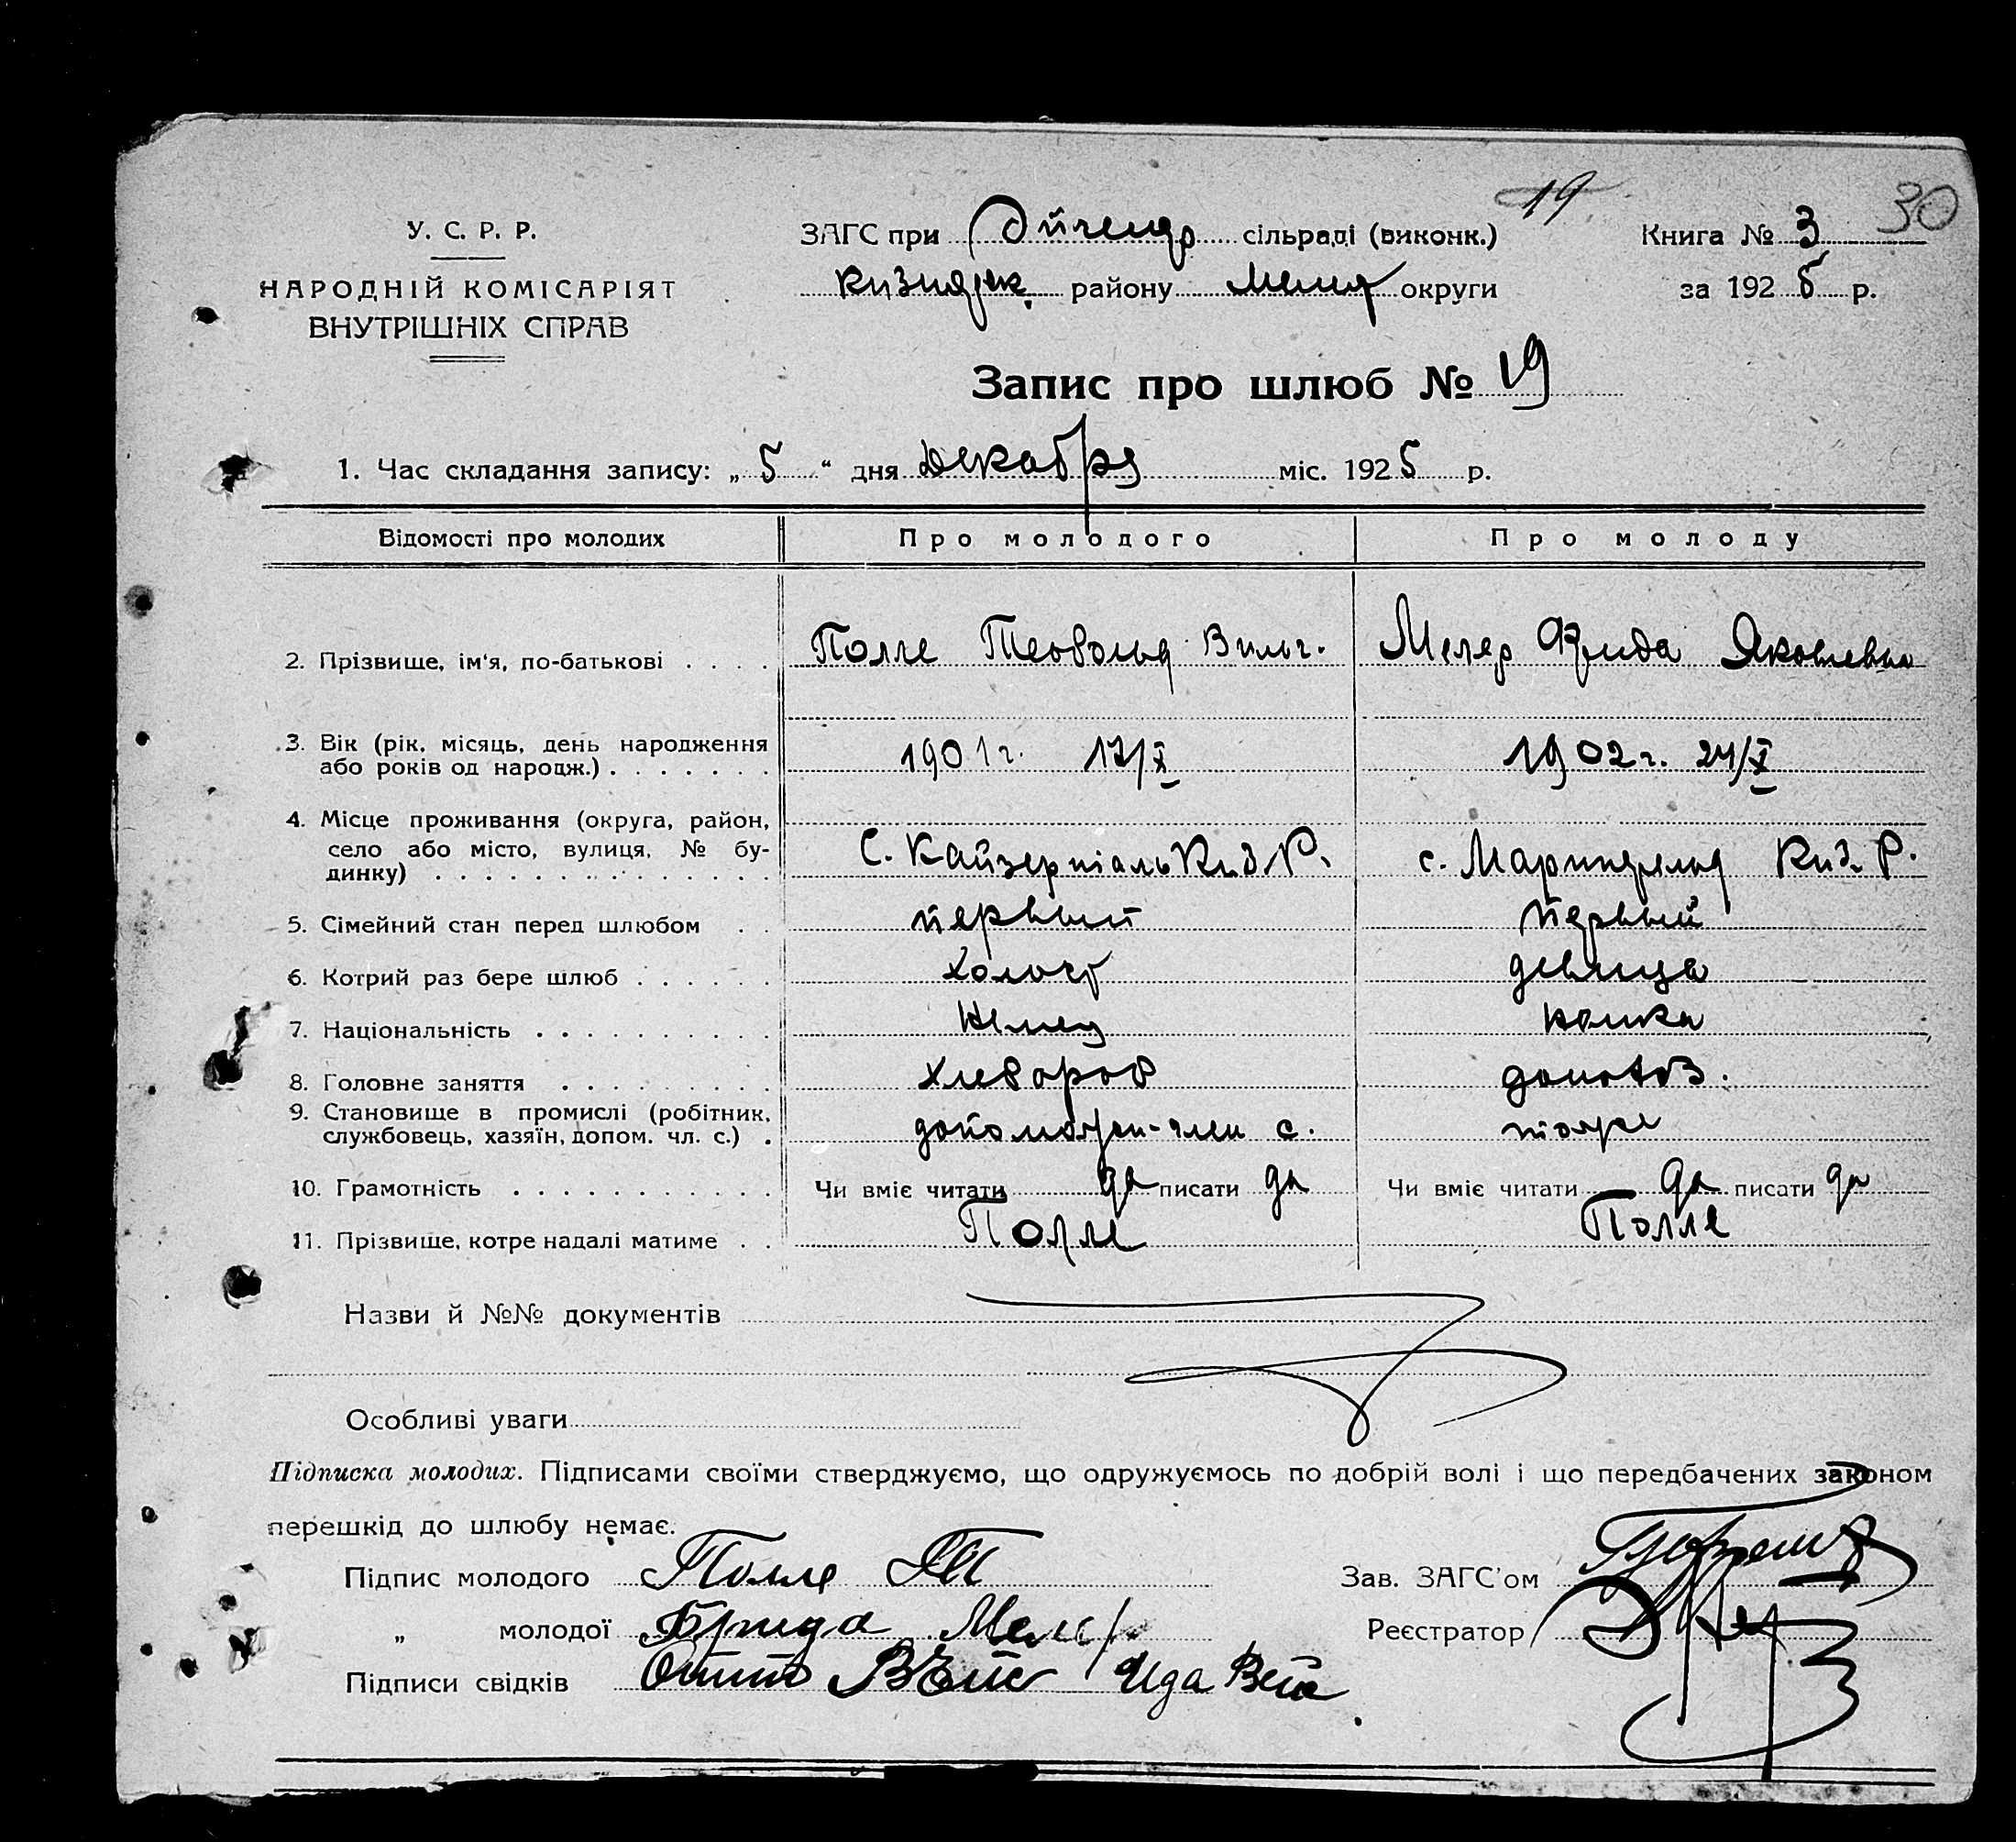 19
30
У. С. Р. Р.
НАРОДНІЙ КОМІСАРІЯТ
ВНУТРІШНІХ СПРАВ
ЗАГС при сільраді (виконк.)
району округи
Книга № 3
за 1925 р.
Запис про шлюб № 19
1. Час складання запису: „5“ дня Декабря міс. 1925 р.
Відомості про молодих Про молодого Про молоду
2. Прізвище, ім'я, по-батькові . . . . Полле Теобольд Вильг. Мелер Фрида Яковлевна
3. Вік (рік, місяць, день народження
або років од народж.) . . . . . . . 1901 г. 17/X 1902 г. 24/X
4. Місце проживання (округа, район,
село або місто, вулиця, № бу-
динку) . . . . . . . . . . . . . . С. Кайзерталь Киз. Р. с. Мариинфельд Киз. Р.
5. Сімейний стан перед шлюбом . . первый первый
6. Котрий раз бере шлюб . . . . . . холост девица
7. Національність . . . . . . . . . . Немец немка
8. Головне заняття . . . . . . . . . хлебороб домохоз.
9. Становище в промислі (робітник,
службовець, хазяїн, допом. чл. с.) . член с. тоже
10. Грамотність . . . . . . . . . . . Чи вміє читати да писати да Чи вміє читати да писати да
11. Прізвище, котре надалі матиме . . Полле Полле
Назви й №№ документів
Особливі уваги
Підписка молодих. Підписами своїми стверджуємо, що одружуємось по добрій волі і що передбачених законом
перешкід до шлюбу немає.
Підпис молодого Полле Зав. ЗАГС'ом
„ молодої Фрида Мелер Реєстратор
Підписи свідків Отто Вейс Ида Вейс